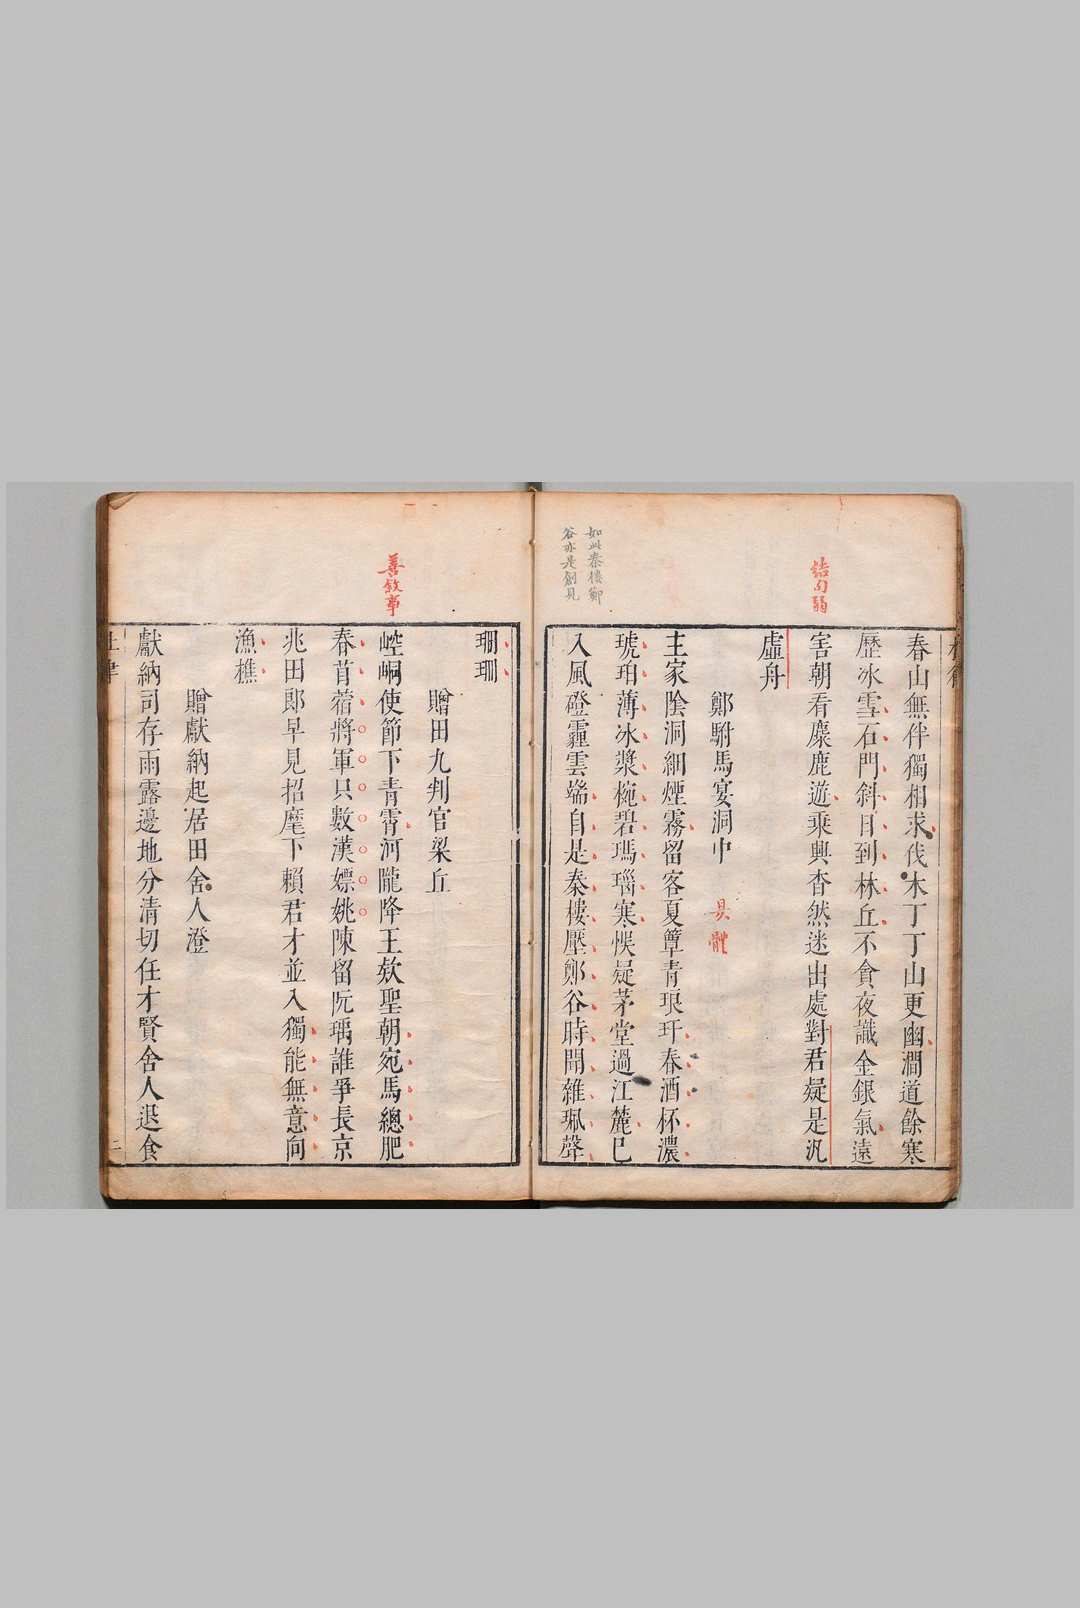 結句弱
春山無伴獨相求伐木丁丁山更幽澗道餘寒
歷冰雪石門斜日到林丘不貪夜識金銀氣遠
害朝看麋鹿遊乗興杳然迷出處對君疑是汎
虛舟
鄭駙馬宴洞中
具體
主家陰洞細煙霧留客夏簟青琅玕春酒杯濃
琥珀薄冰漿椀碧瑪瑙寒悞疑茅堂過江麓已
入風磴霾雲端自是秦樓壓鄭谷時聞雜珮聲
如此秦樓鄭
谷亦是創見
珊珊
贈田九判官梁丘
善敘事
崆峒使節下青霄河隴降王欵聖朝宛馬總肥
春苜蓿將軍只數漢嫖姚陳留阮瑀誰爭長京
兆田郎早見招麾下賴君才並入獨能無意向
漁樵
贈獻納起居田舍人澄
獻納司存雨露邊地分清切任才賢舍人退食
杜律
二